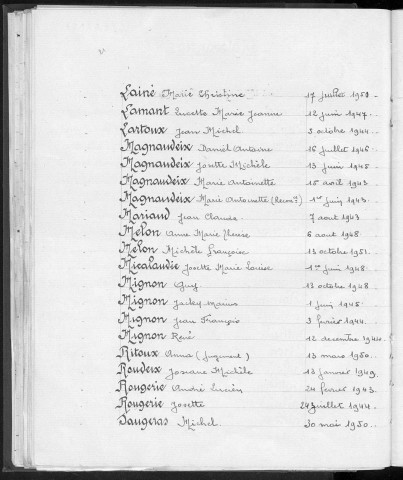 Lainé Marie Christine 17 juillet 1950
Lamant Lucette Marie Jeanne 12 juin 1947
Lartoux Jean Michel 3 octobre 1944
Magnaudeix Daniel Antoine 16 juillet 1946
Magnaudeix Josette Michèle 13 juin 1945
Magnaudeix Marie Antoinette 15 avril 1943
Magnaudeix Marie Antoinette 1er juin 1943
Mariaud Jean Claude 7 août 1943
Melon Anne Marie 6 août 1948
Melon Michèle Françoise 13 octobre 1951
Micalaudie Josette Marie Louise 1er juin 1948
Mignon Guy 13 octobre 1948
Mignon Jacky 1 juin 1945
Mignon Jean François 3 février 1944
Mignon René 12 décembre 1944
Ritoux Anna (Jugement) 13 mars 1950
Rouveix Josiane Michèle 13 janvier 1949
Rougerie André Lucien 24 février 1943
Rougerie Josette 24 juillet 1944
Saugeras Michel 30 mai 1950